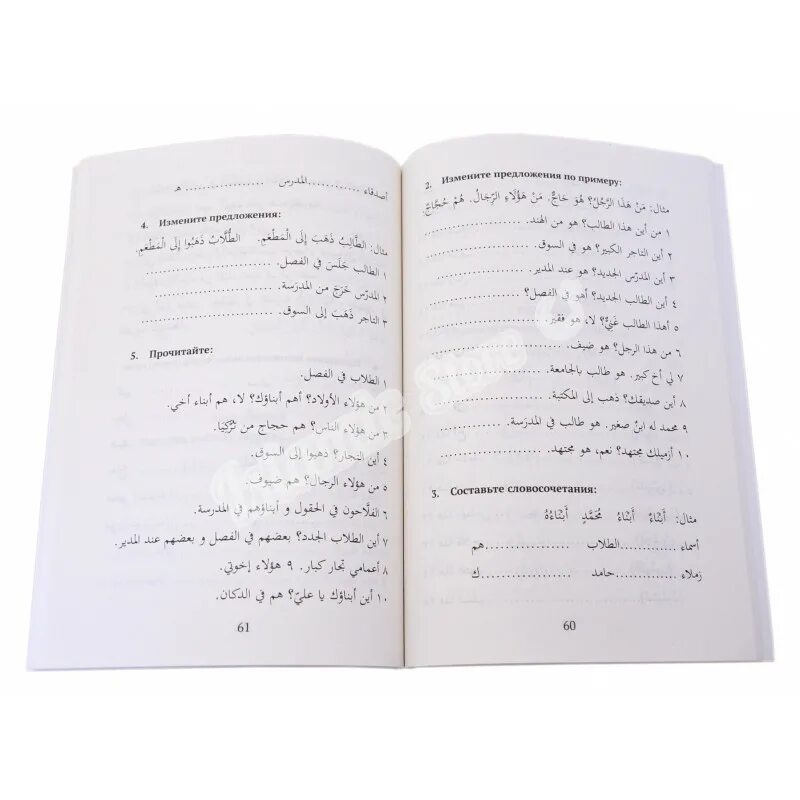 2. Измените предложения по примеру:
مثال: مَنْ هَذَا الرَّجُلُ؟ هُوَ حَاجٌّ. مَنْ هَؤُلَاءِ الرِّجَالُ. هُمْ حُجَّاجٌ.
١ من أين هذا الطالب؟ هو من الهند.
٢ أين التاجر الكبير؟ هو في السوق.
٣ أين المدرّس الجديد؟ هو عند المدير.
٤ أين الطالب الجديد؟ أهو في الفصل؟
٥ أهذا الطالب غَنِيٌّ؟ لا، هو فقير.
٦ من هذا الرجل؟ هو ضيف.
٧ لي أخ كبير. هو طالب بالجامعة.
٨ أين صديقك؟ ذهب إلى المكتبة.
٩ محمد له ابنٌ صغير. هو طالب في المدرسة.
١٠ أزميلك مجتهد؟ نعم، هو مجتهد.
3. Составьте словосочетания:
مثال: أَبْنَاءٌ أَبْنَاءُ مُحَمَّدٍ أَبْنَاءُهُ
أسماء ..............الطلاب ..............هم
زملاء ..............حامد ..............ك
60
أصدقاء ..............المدرس .............. ه
4. Измените предложения:
مثال: الطَّالِبُ ذَهَبَ إِلَى الْمَطْعَمِ. الطُّلَّابُ ذَهَبُوا إِلَى الْمَطْعَمِ.
١ الطالب جَلَسَ في الفصل.
٢ المدرّس خَرَجَ من المدرسة.
٣ التاجر ذَهَبَ إلى السوق.
5. Прочитайте:
١ الطلاب في الفصل.
٢ من هؤلاء الأولاد؟ أهم أبناؤك؟ لا، هم أبناء أخي.
٣ من هؤلاء الناس؟ هم حجاج من تُرْكِيَا.
٤ أين التجار؟ ذهبوا إلى السوق.
٥ من هؤلاء الرجال؟ هم ضيوف.
٦ الفلاّحون في الحقول و أبناؤهم في المدرسة.
٧ أين الطلاب الجدد؟ بعضهم في الفصل و بعضهم عند المدير.
٨ أعمامي تجار كبار. ٩ هؤلاء إخوتي.
١٠ أين أبناؤك يا عليّ؟ هم في الدكان.
61